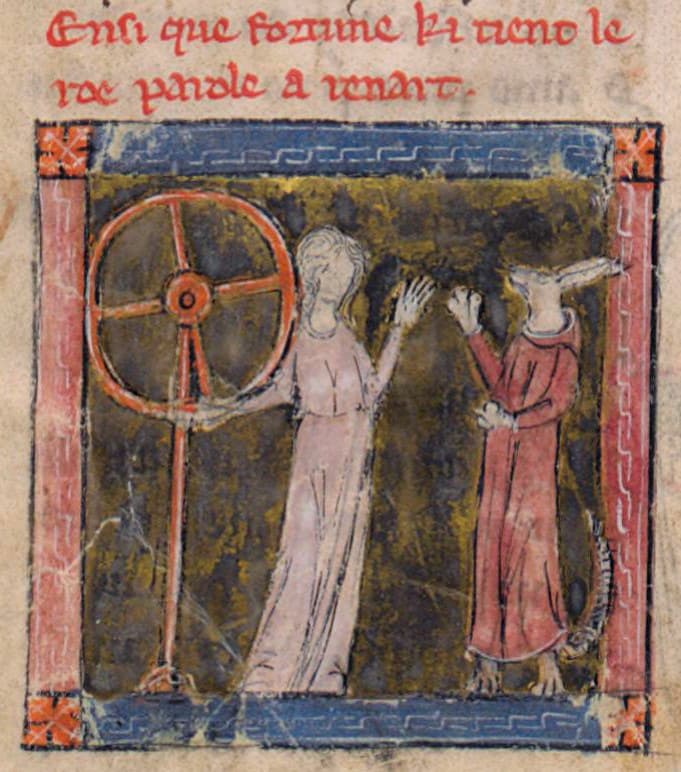 Ensi que fortune ki tient le
roe parole a renart.